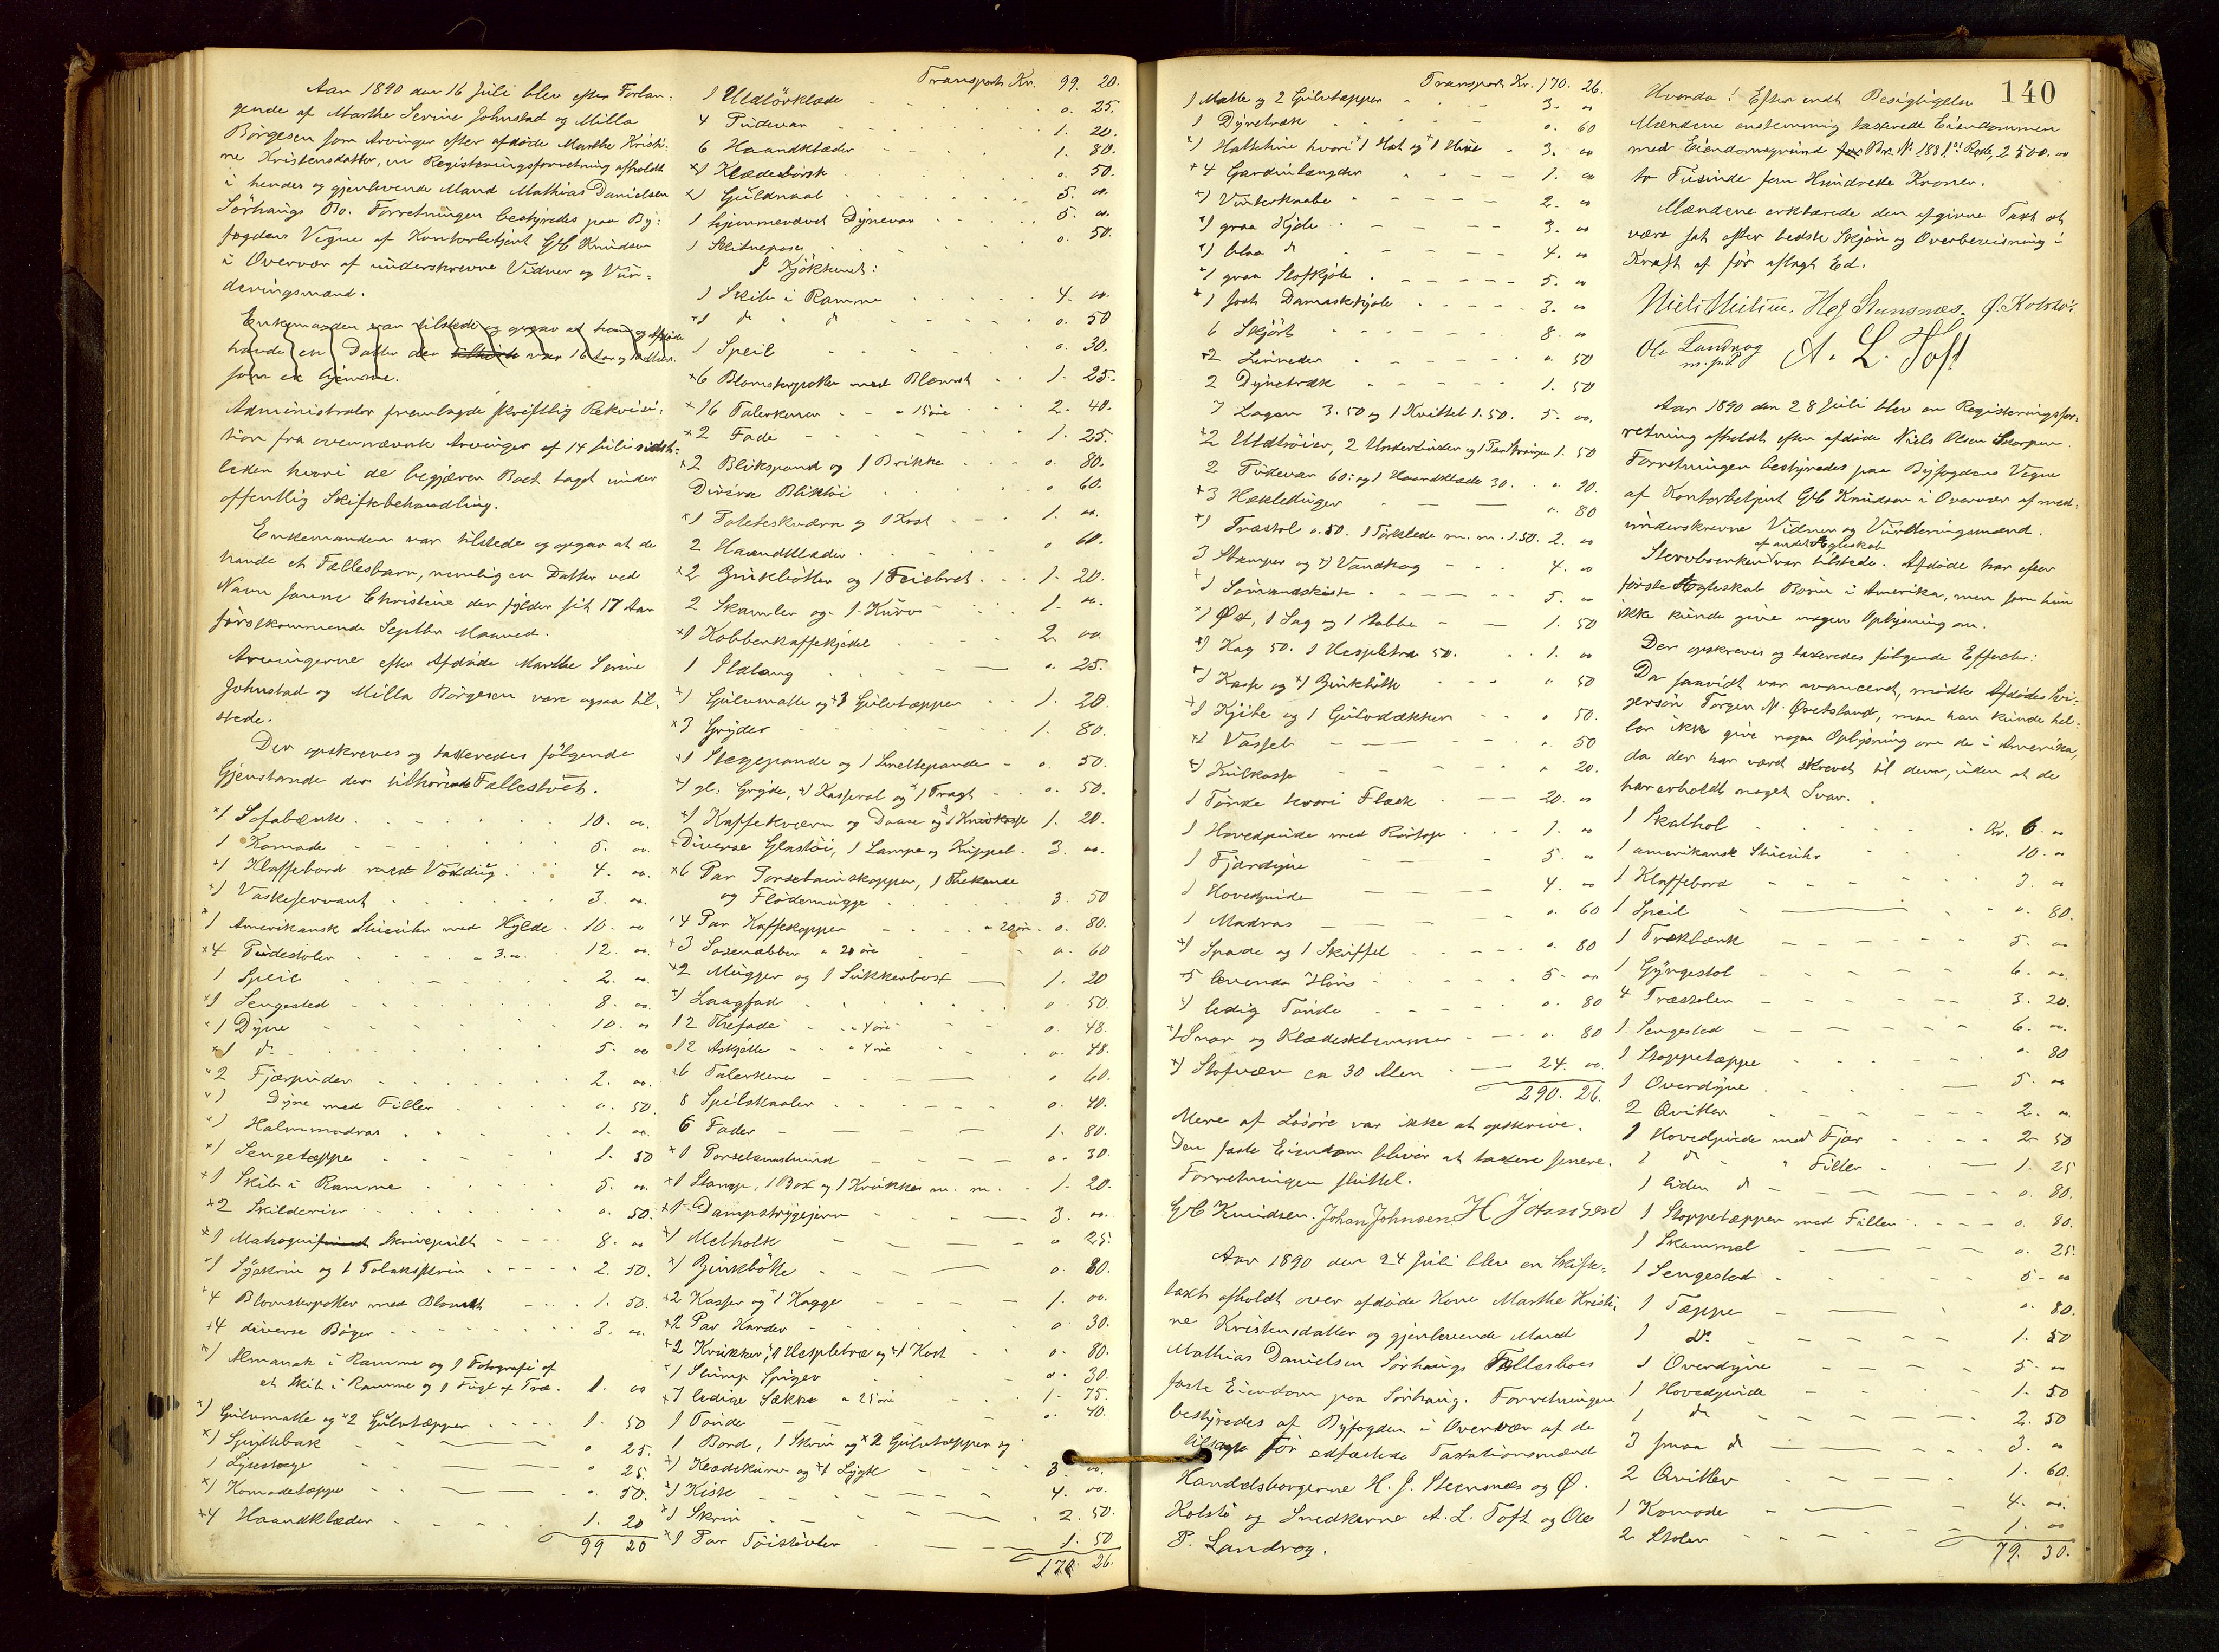 Aar 1890 den 16 Juli blev efter Forlan-
gende af Marthe Serine Johnstad og Milla
Börgesen som Arvinger efter afdöde Marthe Kristi-
ne Kristensdatter, en Registeringsforretning afholdt
i hendes og gjenlevende Mand Mathias Danielsen
Sörhaugs Bo. Forretningen bestyredes paa By-
fogdens Vegne af Kontorbetjent G C Knudsen
i Overvær af underskrevne Vidner og Vur-
deringsmænd.
Enkemanden var tilstede og opgav at han og Afdöde
havde en Datter der tilhörte var 16 Aar gammel
som er hjemme.
Administrator fremlagde skriftlig Rekvisi-
tion fra ovennævnte Arvinger af 14 Juli sidst-
leden hvori de begjærer Boet tagt under
offentlig Skiftebehandling.
Enkemanden var tilstede og opgav at de
havde et Fællesbarn, nemlig en Datter ved
Navn Janne Christine der fylder sit 17 Aar
förstkommende Septbr Maaned.
Arvingerne efter Afdöde Marthe Serine
Johnstad og Milla Börgesen vare ogsaa til-
stede.
Der opskreves og taxeredes fölgende
Gjenstande der tilhörende Fællesboet.
×1 Sofabænk 10. 00.
1 Komode 5. 00.
×1 Klaffebord med Voxdug 4. 00.
×1 Vaskeservant 3. 00.
×1 Amerikansk Stueuhr med Hylde 10. 00
×4 Pudestoler a 3.00 12. 00.
1 Speil 2. 00.
×1 Sengested 8. 00.
×1 Dyne 10. 00
×1 do 5. 00
×2 Fjærpuder 2. 00.
×1 Dyne med Filler 0. 50.
×1 Halmmadras 1. 00.
×1 Sengetæppe 1. 50
×1 Skib i Ramme 5. 00.
×2 Skilderier 0. 50.
×1 Mahogni Skrivepult 8. 00
×1 Syskrin og 1 Tobaksskrin 2. 50.
×4 Blomsterpotter med Blomst 1. 50.
×4 diverse Böger 3. 00.
×1 Almanak i Ramme og 1 Fotografi af
et Skib i Ramme og 1 Fugl af Træ. 1. 00
×1 Gulvmatte og ×2 Gulvtæpper 1. 50
×1 Spyttebak 0 25.
1 Lysestage 0 25.
×1 Komodetæppe 0. 50.
×4 Haandklæder 1. 20
99 20
Transport Kr. 99. 20.
1 Uldtörklæde 0. 25.
4 Pudevar 1. 20.
6 Haandklæder 1. 80.
×1 Klædebörste 0. 50.
×1 Guldnaal 5. 00.
1 hjemmevævet Dynevar 5. 00.
1 Skitnepose 0. 50.
I Kjökkenet:
1 Skib i Ramme 4. 00.
×1 do " do 0. 50
1 Speil 0. 30.
×6 Blomsterpotter med Blomst 1. 25.
×16 Talerkener a 15 öre 2. 40.
×2 Fade 1. 25.
×2 Blikspand og 1 Brikke 0. 80.
Diverse Bliktöi 0 60.
×1 Poteteskværn og 1 Krat 1. 00.
2 Haandklæder 0 60.
×2 Zinkbötter og 1 Feiebret 1. 20.
2 Skamler og 1 Kurv 1. 00.
×1 Kobberkaffekjedel 2 00.
1 Ildtang 0. 25.
×1 Gulvmatte og ×3 Gulvtæpper 1. 20
×3 Gryder 1. 80.
×1 Stegepande og 1 Smeltepande 0. 50.
×1 gl: Gryde, ×1 Kasserol og ×1 Tragt 0. 50.
×1 Kaffekværn og Daase og 1 Knivkasse 1. 20.
×Diverse Glastöi, 1 Lampe og Kuppel 3. 00.
×6 Par Porselainskopper, 1 Thekande
og Flödemugge 3. 50
×4 Par Kaffekopper a 20 öre 0. 80.
×3 Sosenæbber a 20 öre 0. 60
×2 Mugger og 1 Sukkerbox 1. 20
×1 Laagfad 0. 50.
12 Thefade a 4 öre 0. 48.
12 Askjetter a 4 öre 0. 48.
×6 Talerkener 0 60.
8 Spilskaaler 0. 40.
6 Fader 1. 80.
×1 Porselænshund 0. 30.
×1 Stamp, 1 Box og 1 Krukke m. m. 1. 20.
×1 Dampstrygejern 3. 00.
×1 Melholk 0 25.
×1 Zinkbötte 0. 80.
×2 Kasser og ×1 Kagge 1. 00.
×2 Par Karder 0. 30.
×2 Krukker, 1 Hespletræ og ×1 Kost 0. 80.
×1 Slump Spiger 0. 30.
×7 ledige Sække a 25 öre 1. 75.
1 Tönde 0. 40.
1 Bord, 1 Skrin og ×2 Gulvtæpper og
×1 Klædekurv og ×1 Lygt 3. 00.
×1 Kiste 4. 00.
×1 Skrin 2. 50.
×1 Par Töistövler 1. 50
170. 26.
Transport Kr. 170. 26.
1 Matte og 2 Gulvtæpper 3. 00
1 Dynetræk 0. 60
×1 Hatteline hvori ×1 Hat og ×1 Hue 3. 00
×4 Gardinlængder 1. 00
×1 Vinterkaabe 2. 00
×1 graa Kjole 3. 00
×1 blaa do 4. 00
×1 graa Stofkjole 5. 00
×1 sort Damaskkjole 3. 00
6 Skjört 8. 00
×2 Linneder 0. 50
2 Dynetræk 1. 50
7 Lagen 3.50 og 1 Kvittel 1.50. 5. 00.
×2 Uldtröier, 2 Underlinder og 1 Par Strömper 1. 50
2 Pudevar 60: og 1 Haandklæde 30. 0. 90.
×3 Hækleduger 0. 80
×1 Træstol 0.50. 1 Törklæde m. m. 1.50. 2. 00
3 Stamper og ×1 Vandtrog 4. 00
×1 Sömandskiste 5. 00
×1 Öx, 1 Sag og 1 Stabbe 1. 50
×1 Kag 50. 1 Hespletræ 50. 1. 00
×1 Kasse og ×1 Zinkbötte 0 50
×1 Kjibe og 1 Gulvdækken 0 50.
×1 Vaskeb 0. 50
×1 Kulkasse 0 20.
1 Tönde hvori Flesk 20. 00
1 Hovedpude med 1. 00
1 Fjærdyne 5. 00
1 Hovedpude 4. 00
1 Madras 0. 60
×1 Spade og 1 Skuffel 0. 80
×5 levende Höns 5. 00
×1 ledig Tönde 0. 80
×1 Snor og Klædesklemmer 0. 80
×1 Stofvæv ca 30 Alen 24. 00.
290. 26.
Mere af Lösöre var ikke at opskrive.
Den faste Eiendom bliver at taxere senere.
Forretningen sluttet.
G C Knudsen. Johan Johnsen H Johnsen
Aar 1890 den 24 Juli blev en Skifte-
taxt afholdt over afdöde Kone Marthe Kristi-
ne Kristensdatter og gjenlevende Mand
Mathias Danielsen Sörhaugs Fællesboes
faste Eiendom paa Sörhaug. Forretningen
bestyredes af Byfogden i Overvær af de
tilsagte för edfæstede Taxationsmænd
Handelsborgerne H. J. Steensnæs og Ö.
Kolstö og Snedkerne A. L. Toft og Ole
P. Landrog.
140
Hvorda! Efter endt Besigtigelse
Mændene enstemmig taxerede Eiendommen
med Eiendomsgrund Bnr. N. 188 1ste Rode, 2500.00
to Tusinde fem Hundrede Kroner.
Mændene erklærede den afgivne Taxt at
være sat efter bedste Skjön og Overbevisning i
Kraft af för aflagt Ed.
Niels Nielsen. H J Steensnæs. Ö. Kolstö.
Ole Landrog
m. p. P. A. L. Toft
Aar 1890 den 28 Juli blev en Registeringsfor-
retning afholdt efter afdöde Niels Olsen Skorpen.
Forretningen bestyredes paa Byfogdens Vegne
af Kontorbetjent G C Knudsen i Overvær af med-
underskrevne Vidner og Vurderingsmænd.
af andet Ægteskab
Stervboenken var tilstede. Afdöde har efter
förste Ægteskab Börn i Amerika, men som hun
ikke kunde give nogen Oplysning om.
Der opskreves og taxeredes fölgende Effecter:
Da saavidt var avanceret, mödte Afdödes Svi-
gersön Torger N. Övetsland, men han kunde hel-
ler ikke give nogen Oplysning om de i Amerika,
da der har været skrevet til dem, uden at de
har erholdt noget Svar.
1 Skathol Kr. 6. 00
1 amerikansk Stueuhr 10. 00
1 Klaffebord 3. 00
1 Speil 0. 80.
1 Trækbænk 5. 00
1 Gyngestol 6. 00.
4 Træstoler 3. 20.
1 Sengested 6. 00.
1 Stoppetæppe 0. 80
1 Overdyne 5. 00
2 Qvitler 2. 00.
1 Hovedpude med Fjær 2. 50
1 do " Filler 1. 25
1 liden do 0. 80.
1 Stoppetæpper med Filler 0. 80.
1 Skammel 0. 25.
1 Sengested 5. 00
1 Tæppe 0. 80.
1 do 1. 50
1 Overdyne 5. 00
1 Hovedpude 1. 50
1 do 2. 50
3 smaa do 3. 00
2 Qvitler 1. 60.
1 Komode 4. 00.
2 Stoler 1. 00
79. 30.